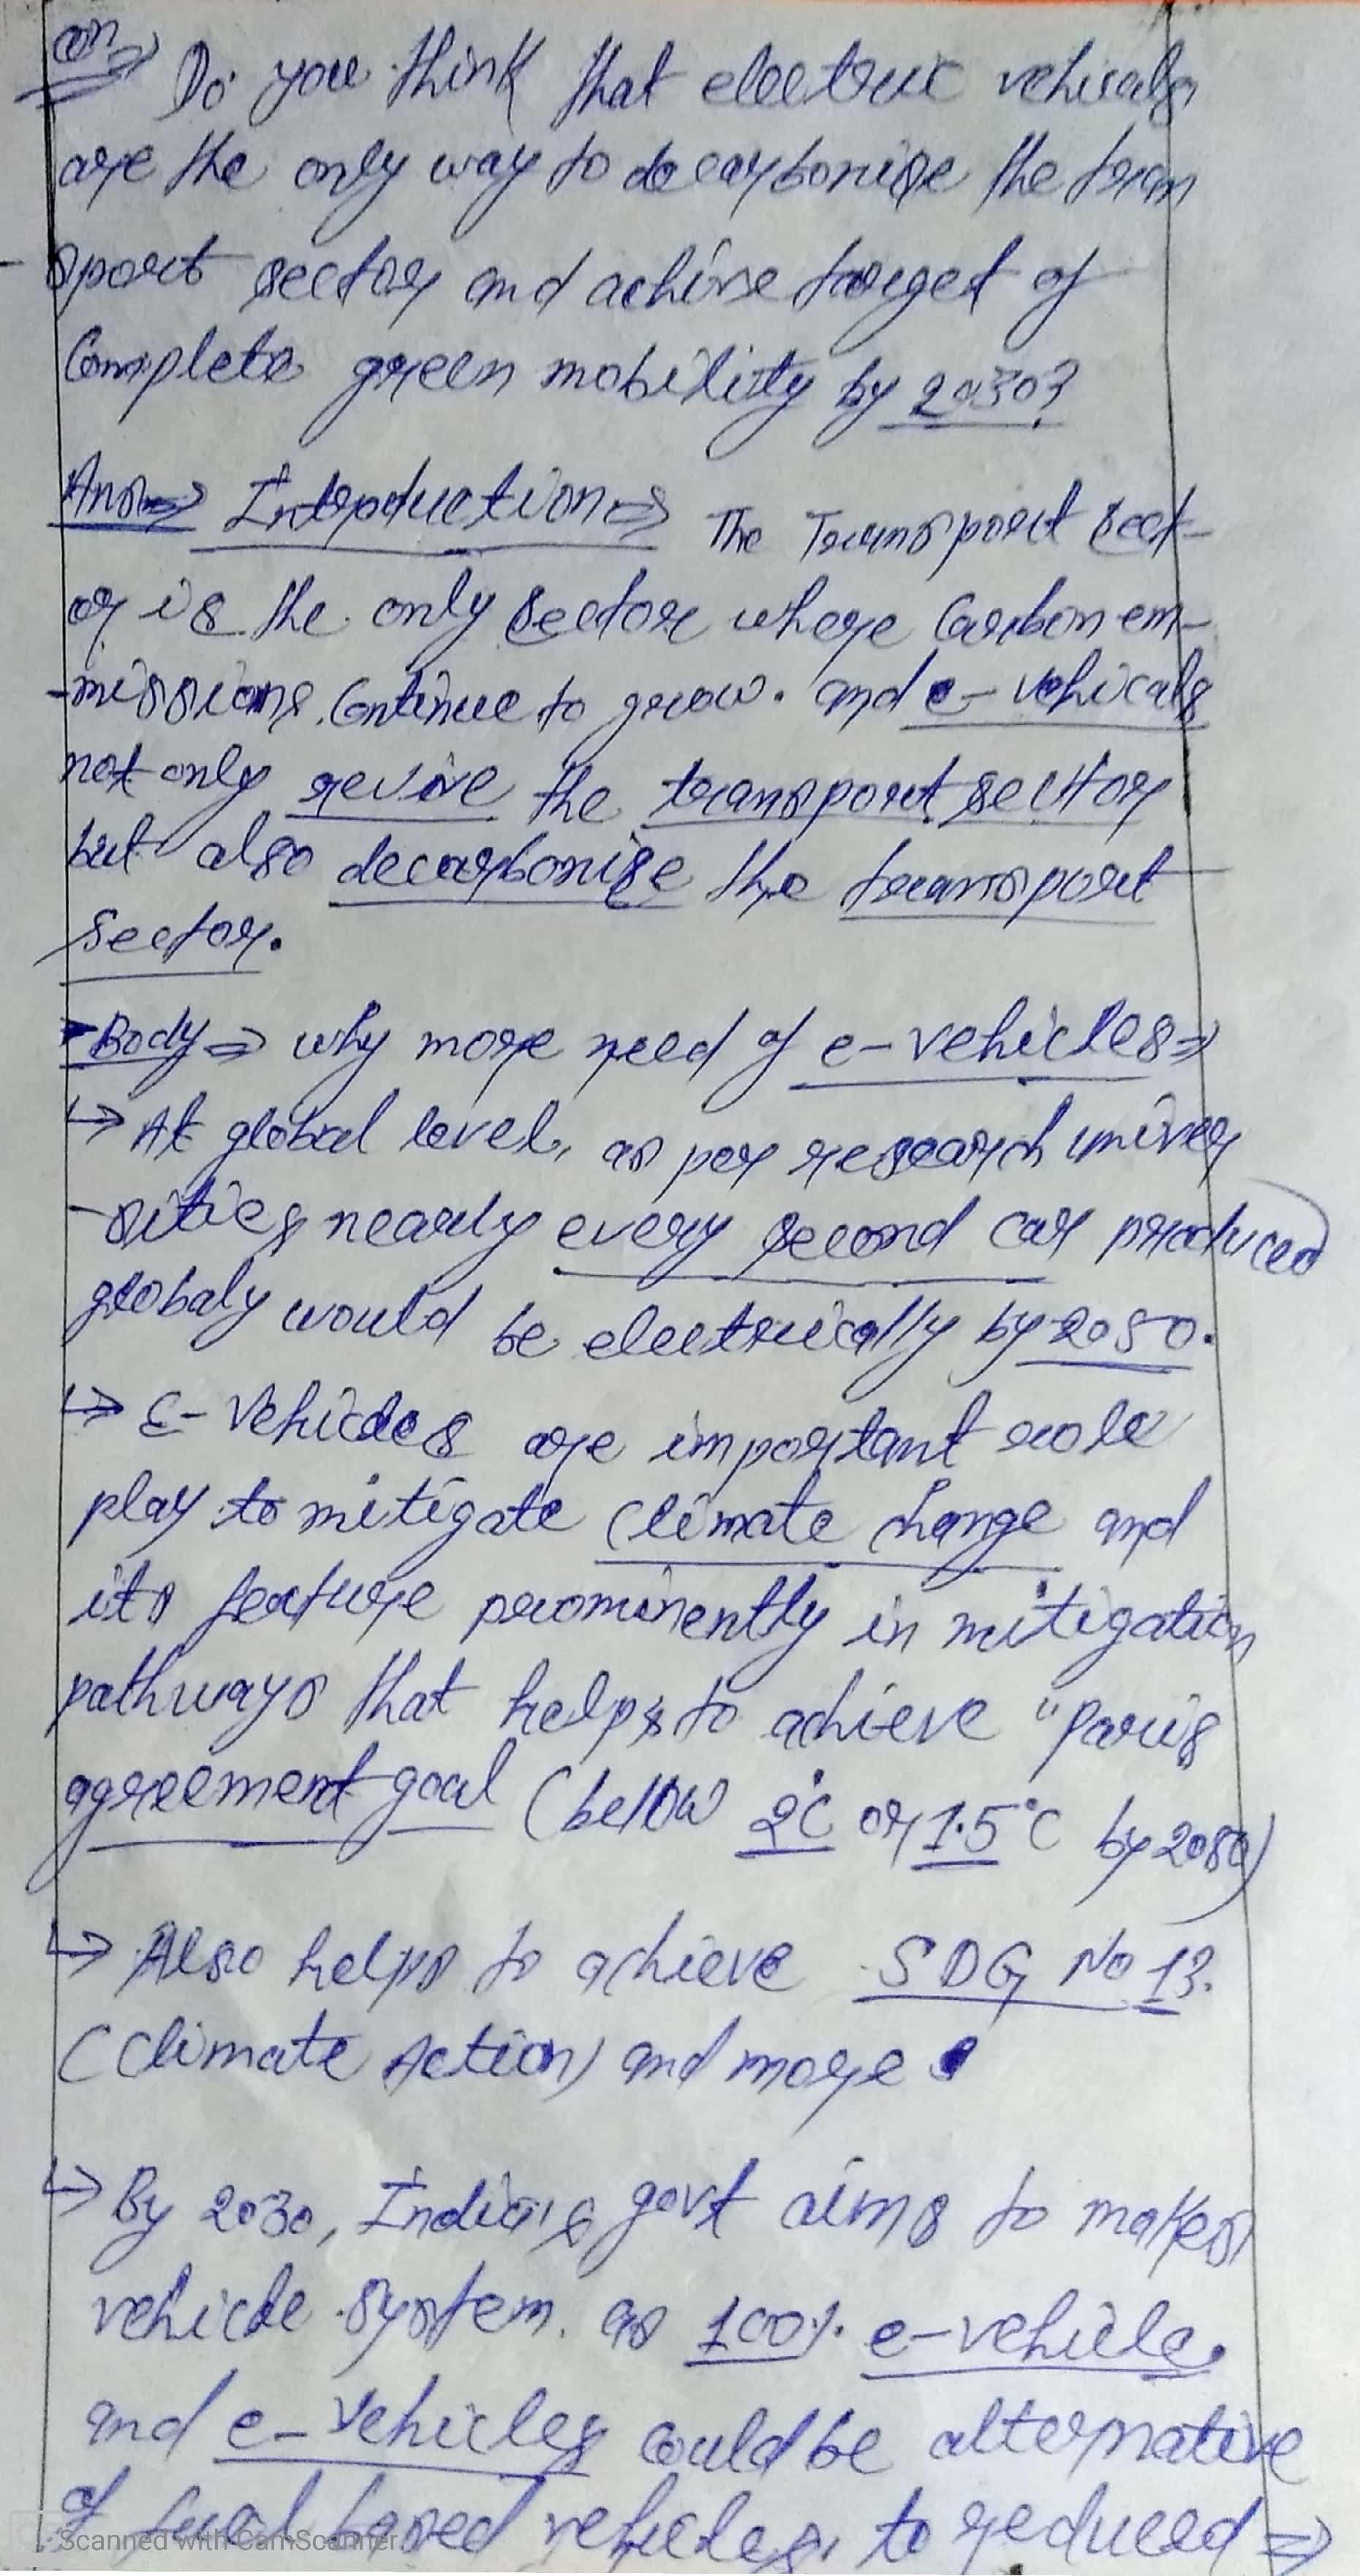 Qn⇒ Do you think that electric vehicals
are the only way to decarbonise the tran
sport sector and achive target of
Complete green mobility by 2030?
Ans⇒ Introduction⇒ The Transport sect-
or is the only sector where Carbon em-
-missions Continue to grow. and e-vehicals
not only revive the transport sector
but also decarbonise the transport
sector.
Body⇒ why more need of e-vehicles⇒
↳ At global level, as per research univer
-sities nearly every second car produced
globaly would be electrically by 2050.
↳ E-Vehicles are important role
play to mitigate Climate change and
its feature prominently in mitigation
pathways that helps to achieve "Paris
agreement goal (bellow 2°C or 1.5°C by 2050)
↳ Also helps to achieve SDG No 13.
(Climate Action) and more.
↳ By 2030, India's govt aims to makes
vehicle system. as 100%. e-vehicle.
and e-vehicles could be alternative
of fuel based vehicles, to reduced ⇒
Scanned with CamScanner